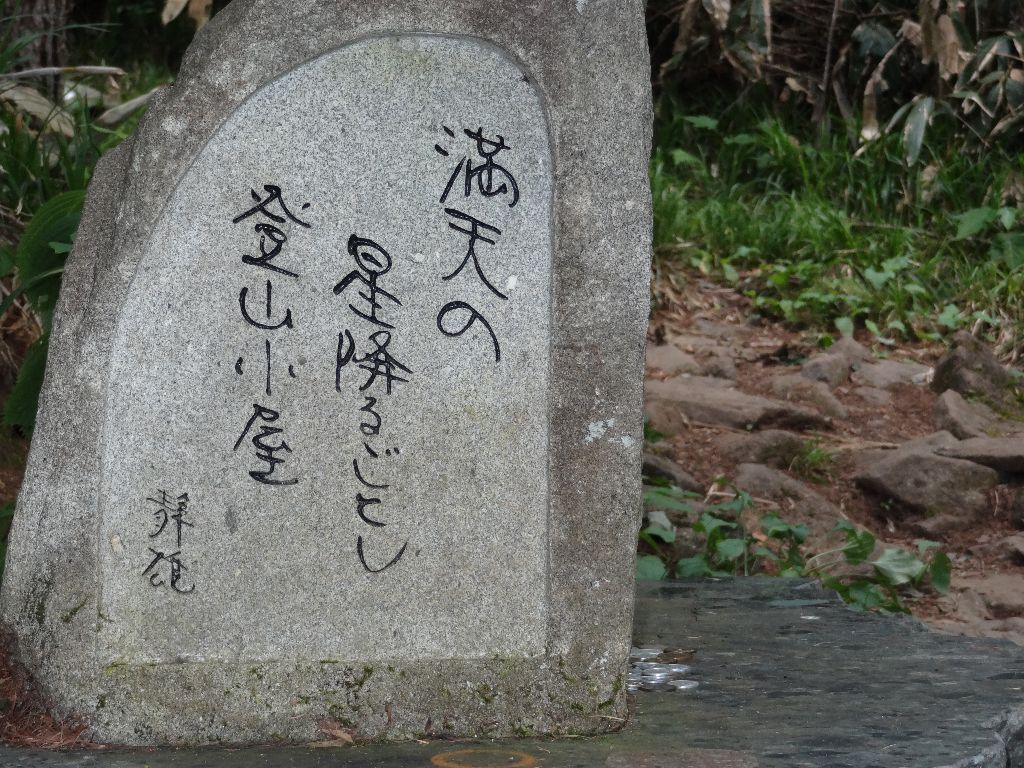 満天の
星降るごとし
登山小屋
静雄